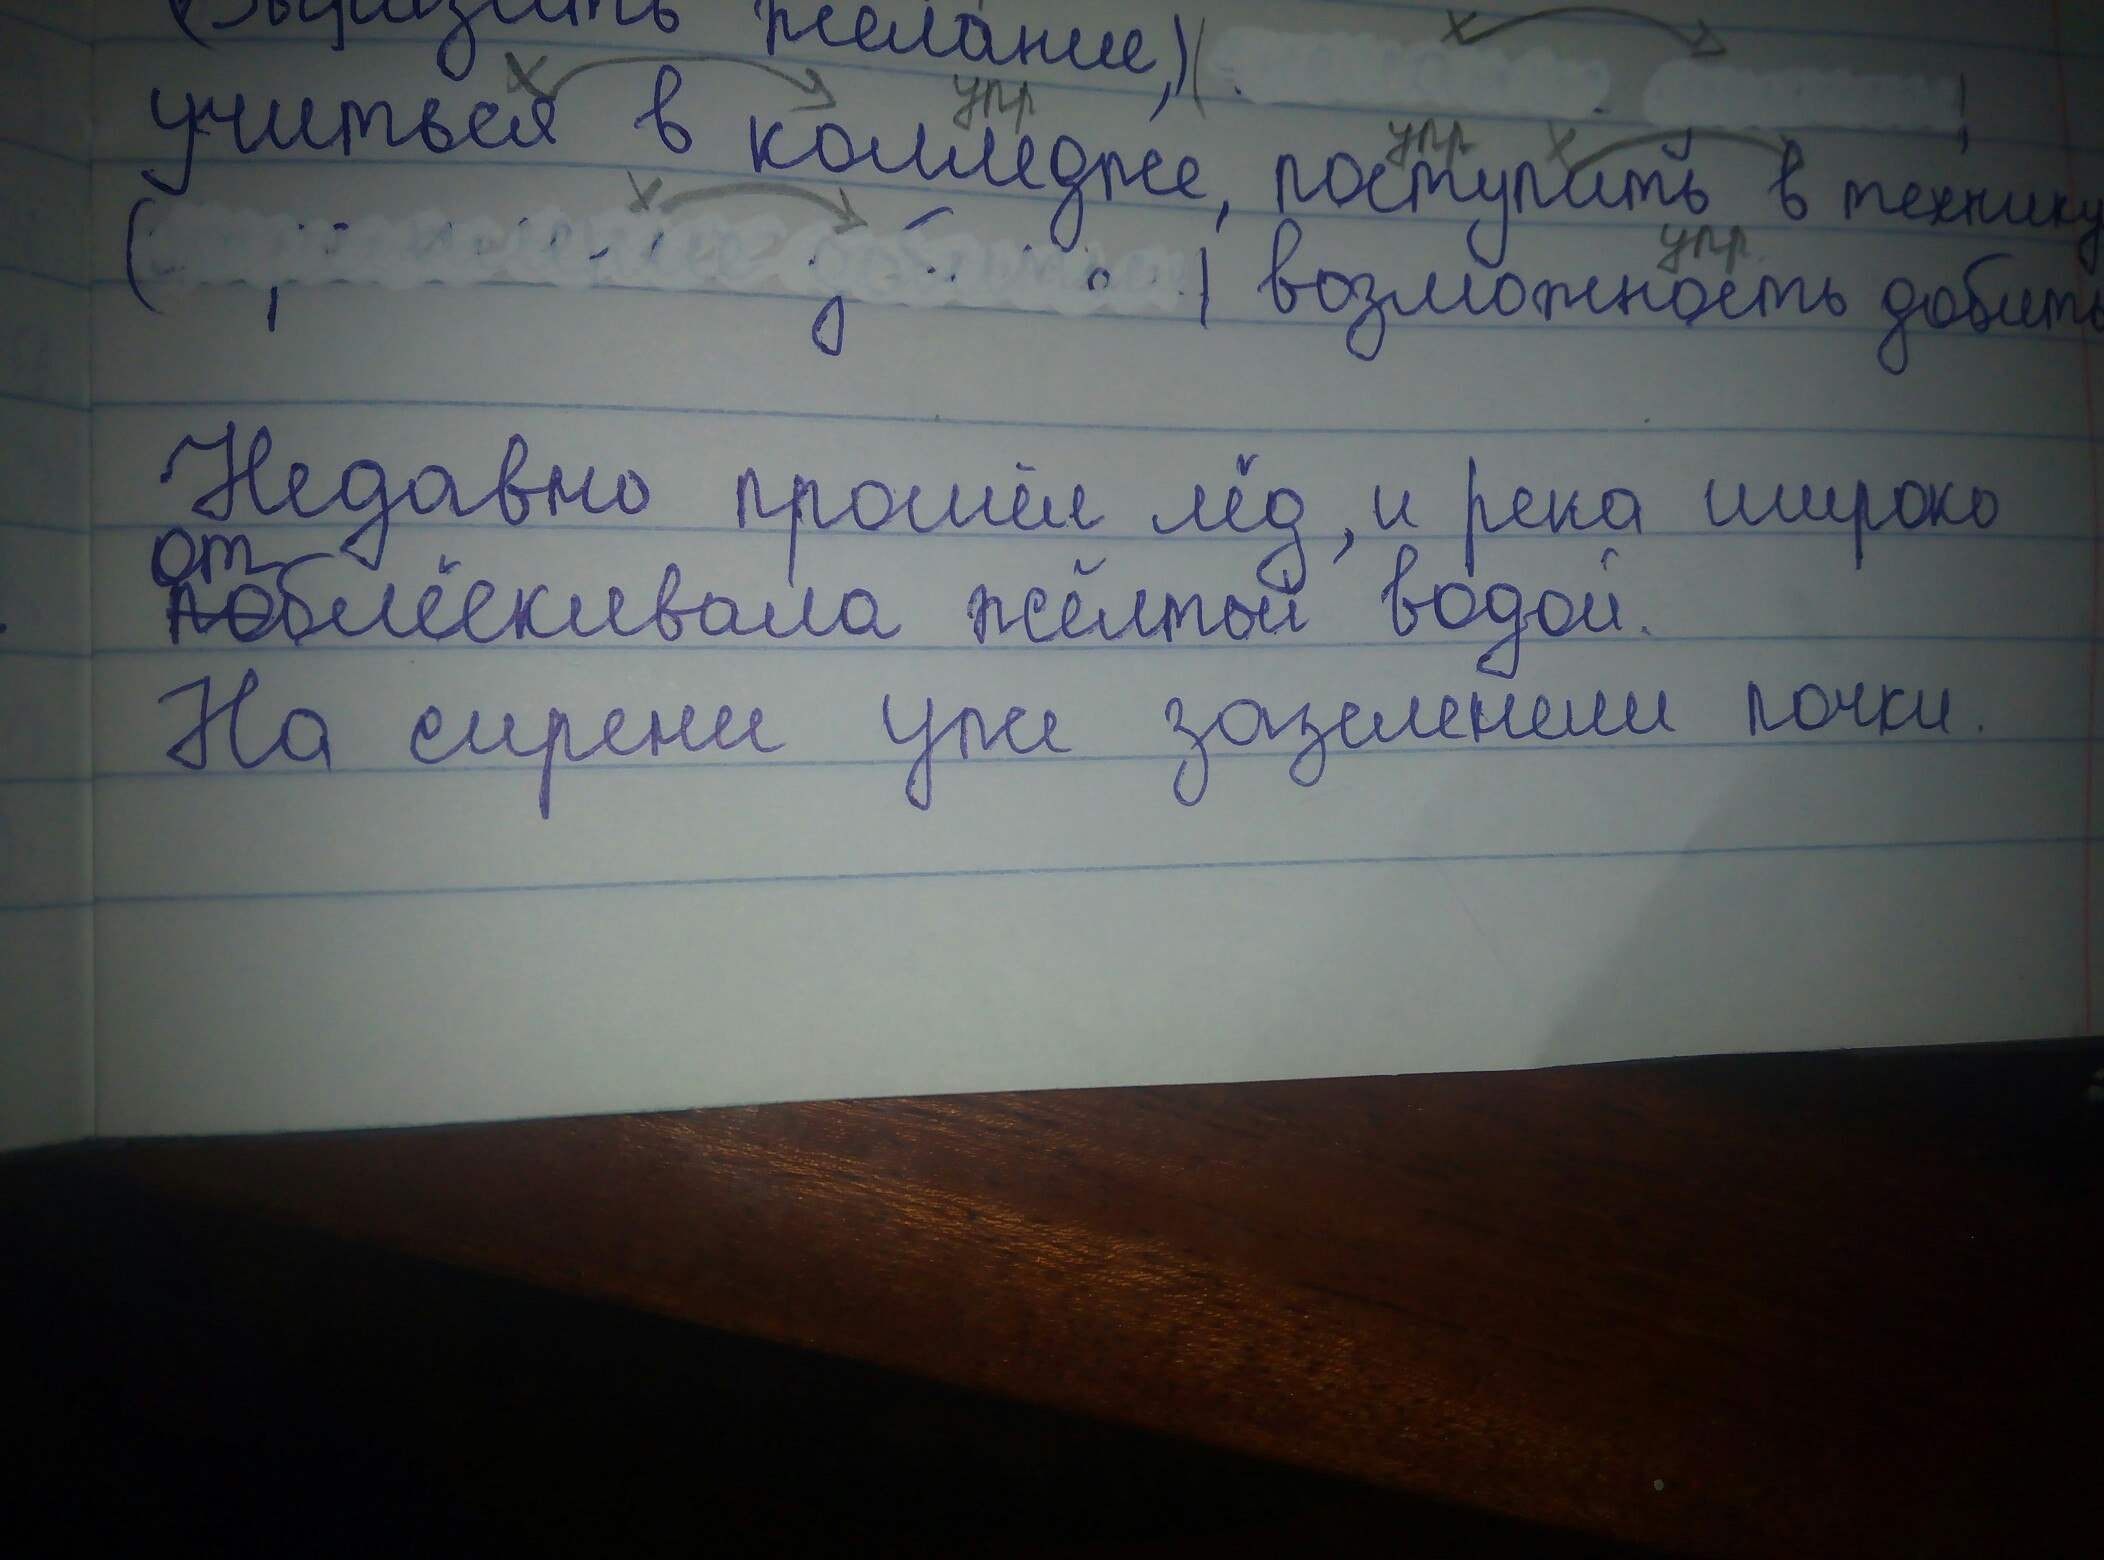 (Выразить желание,) (
учиться в колледже, поступить в технику
упр упр
( ) возможность добить
упр.
Недавно прошёл лёд, и река широко
от
поблёскивала жёлтой водой.
На сирени уже зазеленели почки.